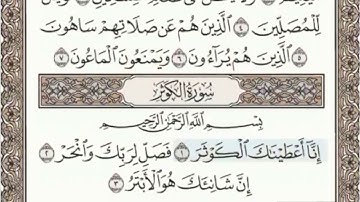 لِّلْمُصَلِّينَ ٤ ٱلَّذِينَ هُمْ عَن صَلَاتِهِمْ سَاهُونَ
٥ ٱلَّذِينَ هُمْ يُرَآءُونَ ٦ وَيَمْنَعُونَ ٱلْمَاعُونَ ٧
سُورَةُ الكَوْثَرِ
بِسْمِ ٱللَّهِ ٱلرَّحْمَٰنِ ٱلرَّحِيمِ
إِنَّآ أَعْطَيْنَٰكَ ٱلْكَوْثَرَ ١ فَصَلِّ لِرَبِّكَ وَٱنْحَرْ ٢
إِنَّ شَانِئَكَ هُوَ ٱلْأَبْتَرُ ٣